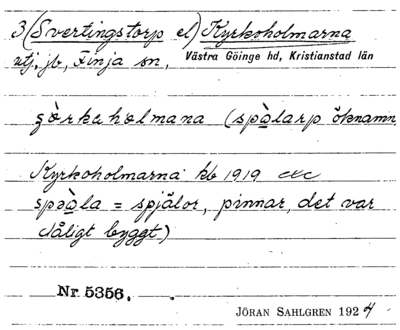 3 (Svertingstorp el) Kyrkoholmarna
utj, jb, Finja sn, Västra Göinge hd, Kristianstad län
(spòlarp öknamn
Kyrkoholmarna kb 1919
= spjälor, pinnar, det var
dåligt byggt)
Nr. 5356.
JÖRAN SAHLGREN 1924